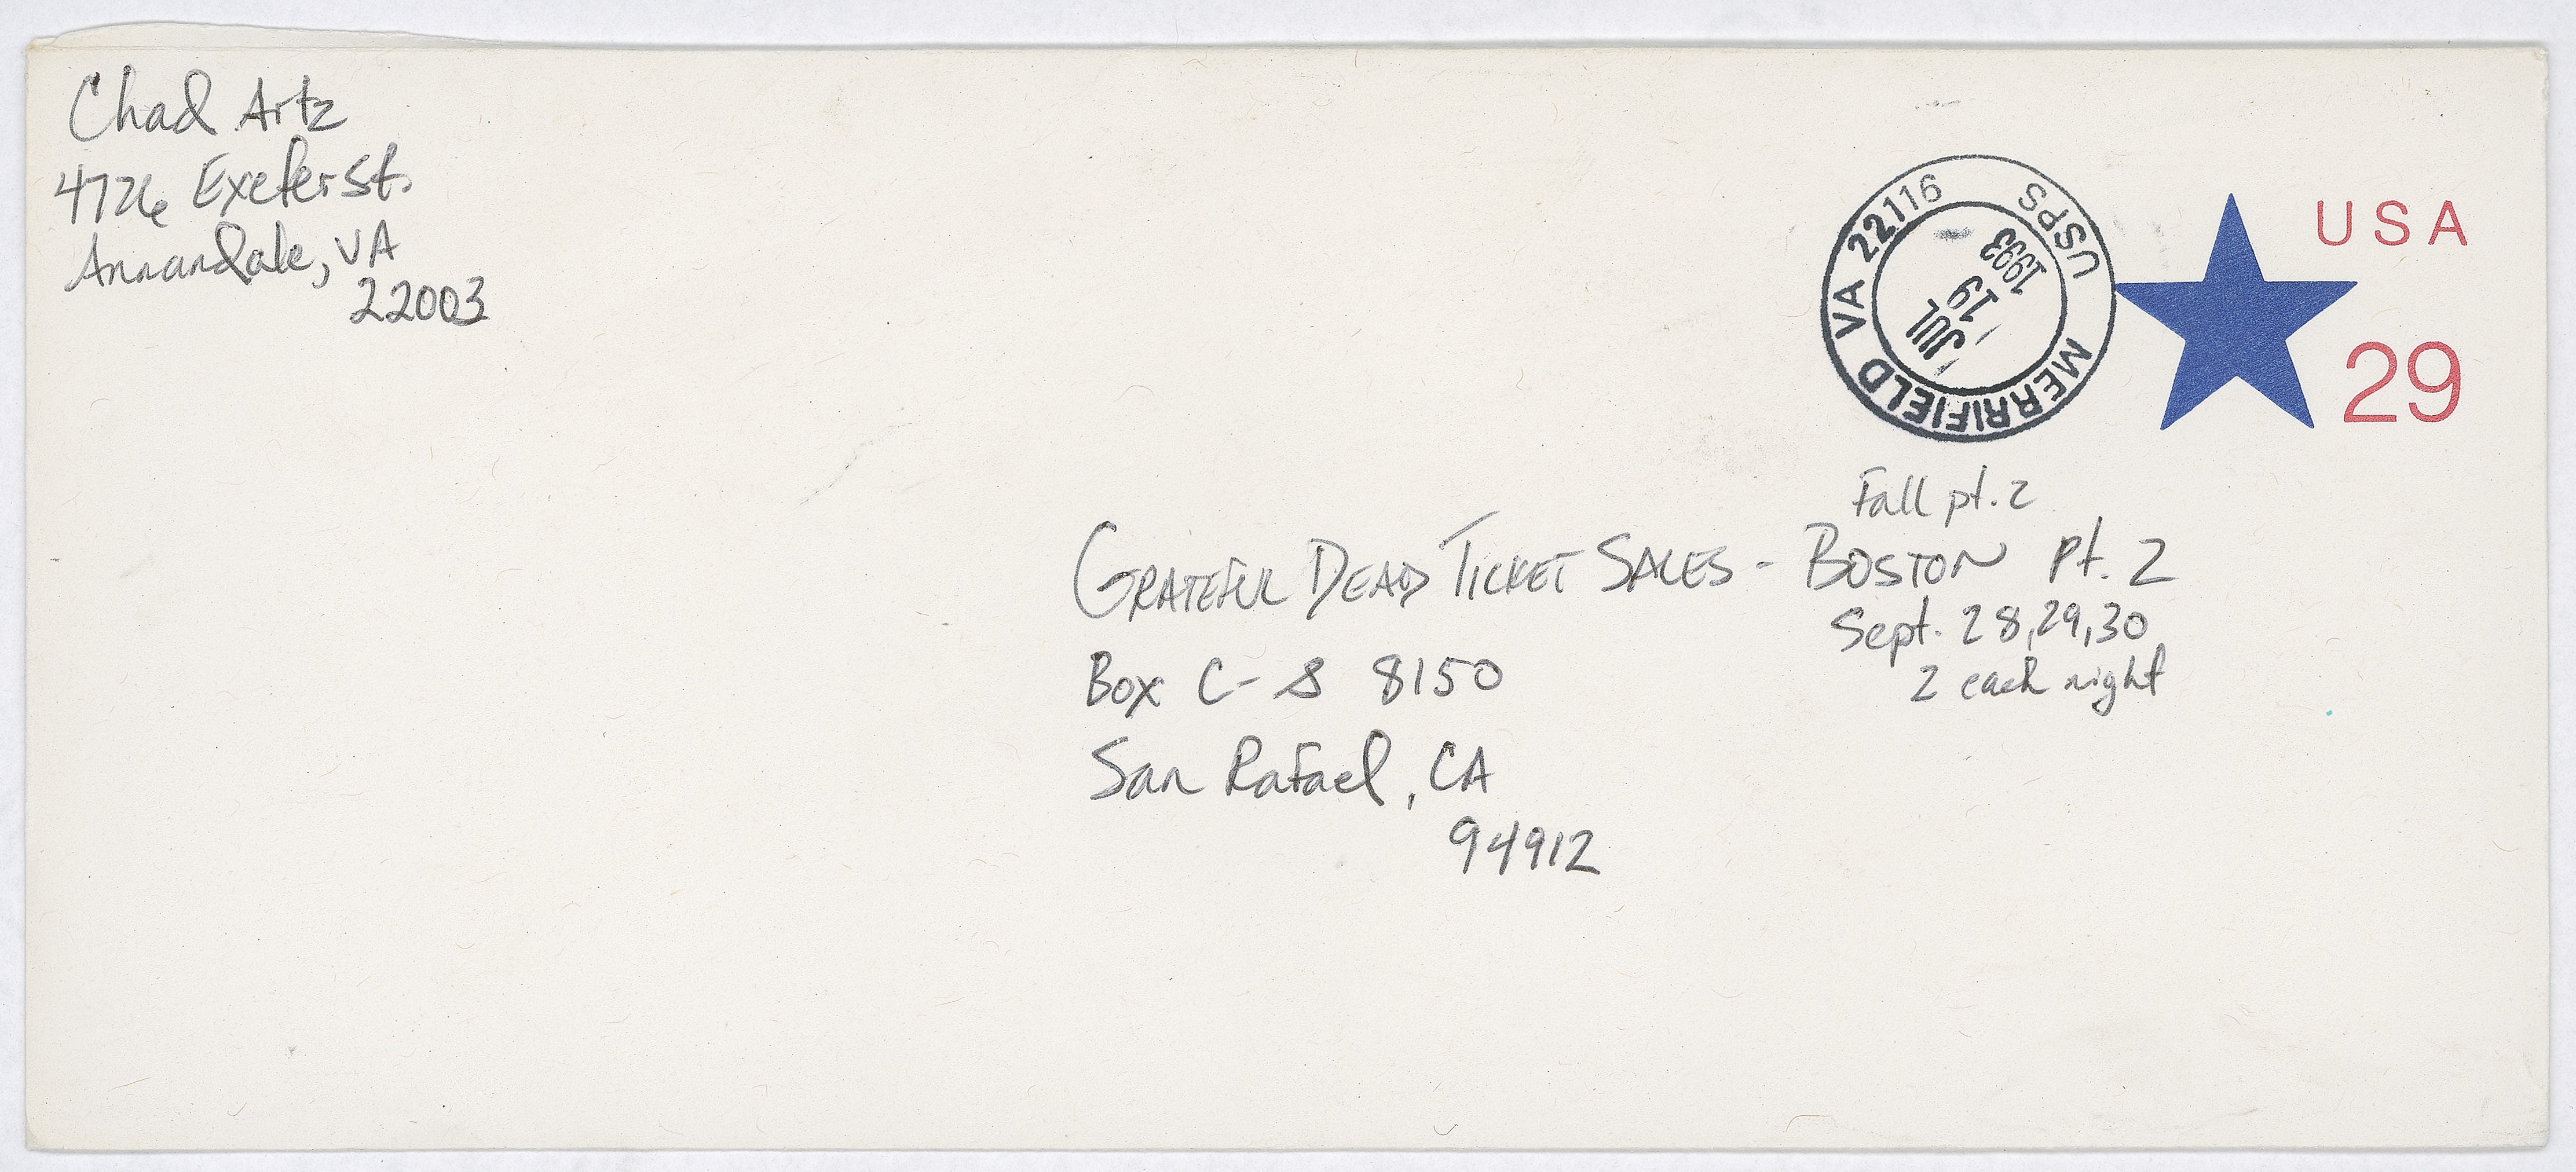 Chad Artz
4726 Exeter St.
Annandale, VA
22003
MERRIFIELD VA 22116
USPS
JUL
19
1993
USA
29
Fall pt. 2
GRATEFUL DEAD TICKET SALES - BOSTON Pt. 2
Sept. 28, 29, 30
2 each night
Box C-S 8150
San Rafael, CA
94912